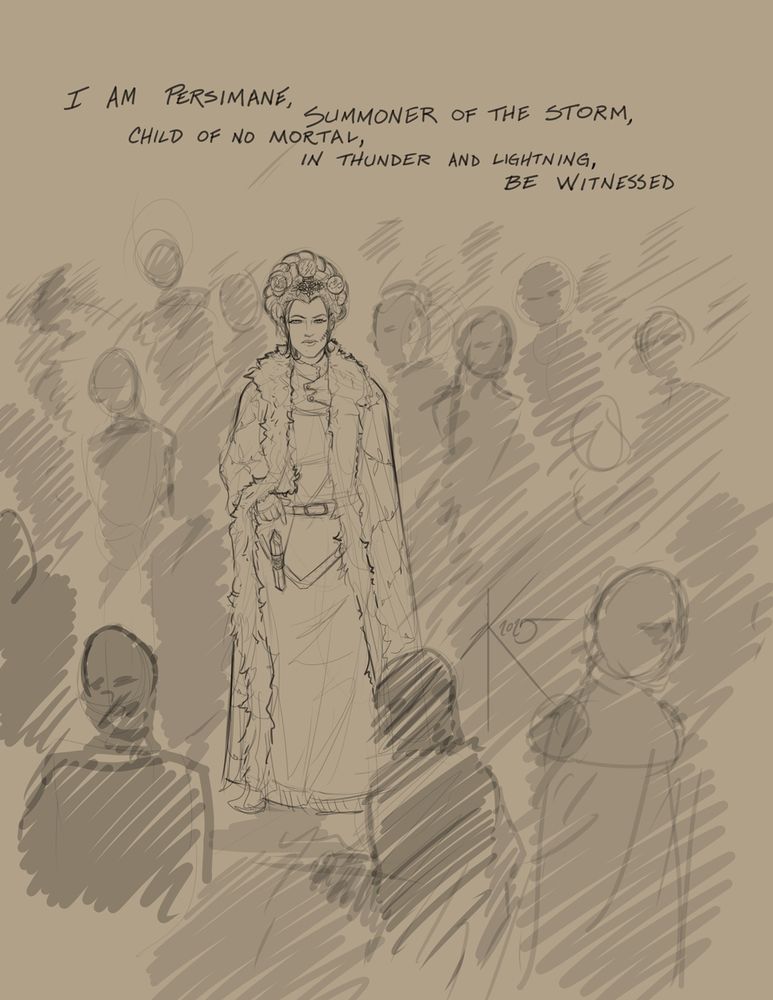 I AM PERSIMANE,
SUMMONER OF THE STORM,
CHILD OF NO MORTAL,
IN THUNDER AND LIGHTNING,
BE WITNESSED
K 2025